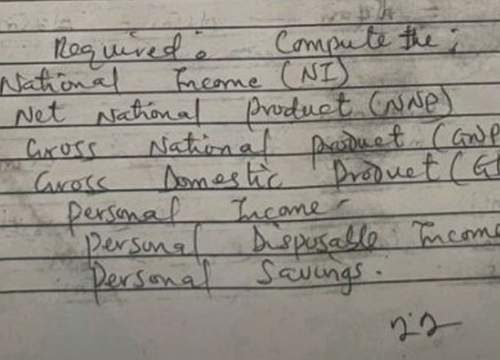 Required: Compute the;
National Income (NI)
Net National Product (NNP)
Gross National Product (GNP
Gross Domestic Product (G
Personal Income
Personal Disposable Income
Personal Savings.